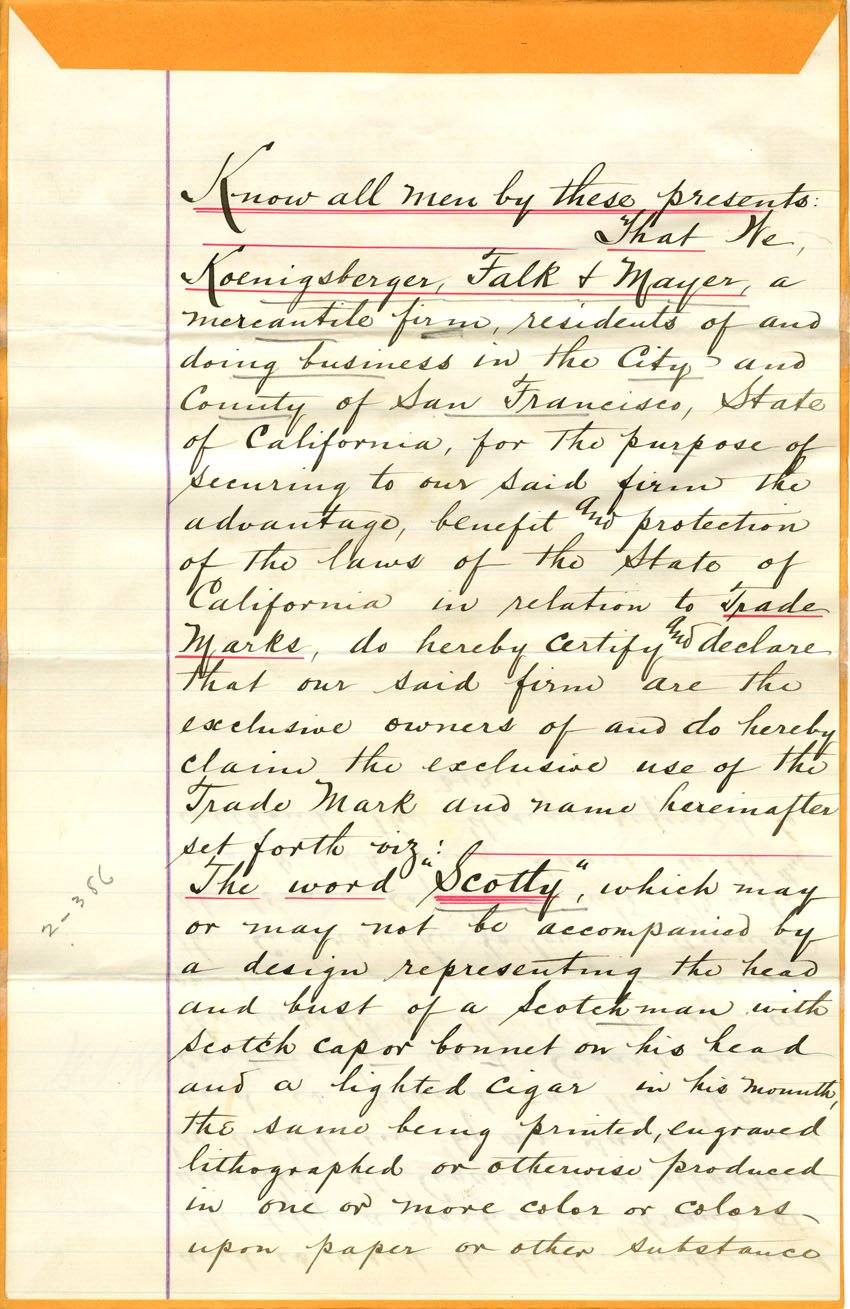 Know all men by these presents:
That We,
Koenigsberger, Falk & Mayer, a
mercantile firm, residents of and
doing business in the City and
County of San Francisco, State
of California, for the purpose of
securing to our said firm the
advantage, benefit and protection
of the laws of the State of
California in relation to Trade
Marks, do hereby certify and declare
that our said firm are the
exclusive owners of and do hereby
claim the exclusive use of the
Trade Mark and name hereinafter
set forth viz:
The word "Scotty", which may
or may not be accompanied by
a design representing the head
and bust of a Scotchman with
Scotch cap or bonnet on his head
and a lighted cigar in his mounth,
the same being printed, engraved
lithographed or otherwise produced
in one or more color or colors
upon paper or other substance
2-356